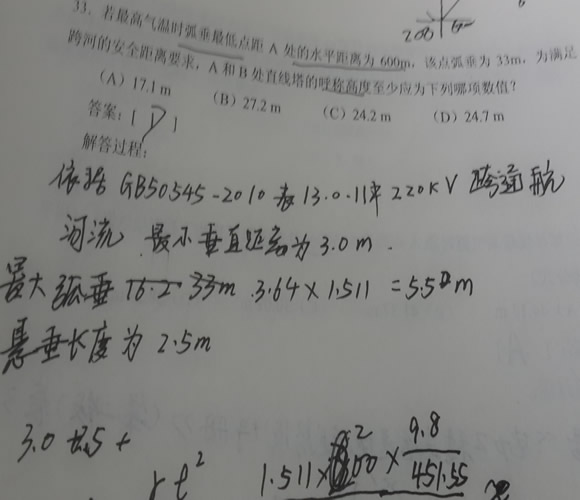 200
33. 若最高气温时弧垂最低点距 A 处的水平距离为 600m, 该点弧垂为 33m, 为满足
跨河的安全距离要求, A 和 B 处直线塔的呼称高度至少应为下列哪项数值?
(A) 17.1 m (B) 27.2 m (C) 24.2 m (D) 24.7 m
答案: [ D ]
解答过程:
依据 GB50545-2010 表 13.0.11中 220KV 跨通航
河流 最小垂直距离为 3.0 m.
最大弧垂 33m 3.64 × 1.511 = 5.5 m
悬垂长度为 2.5m
3.0 +
1.511 × 9.8
451.55